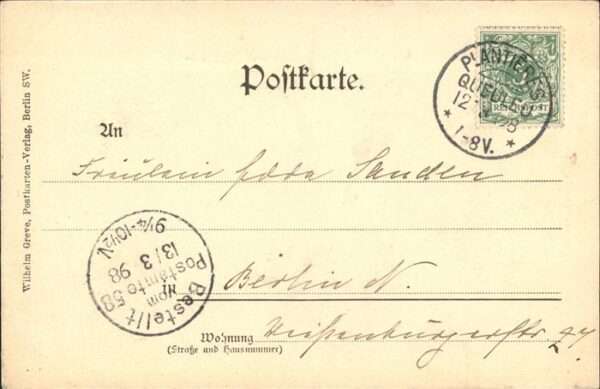 Postkarte.
An
Fräulein Edda Sanden
in
Berlin N.
Wohnung
(Straße und Hausnummer)
Weißenburgerstr.
Wilhelm Greve, Postkarten-Verlag, Berlin SW.
PLANTIÈRES
QUEULEU
12
98
* 7-8V. *
REICHSPOST
Bestellt
vom
Postamte 58
13/3 98
9¼-10½V.